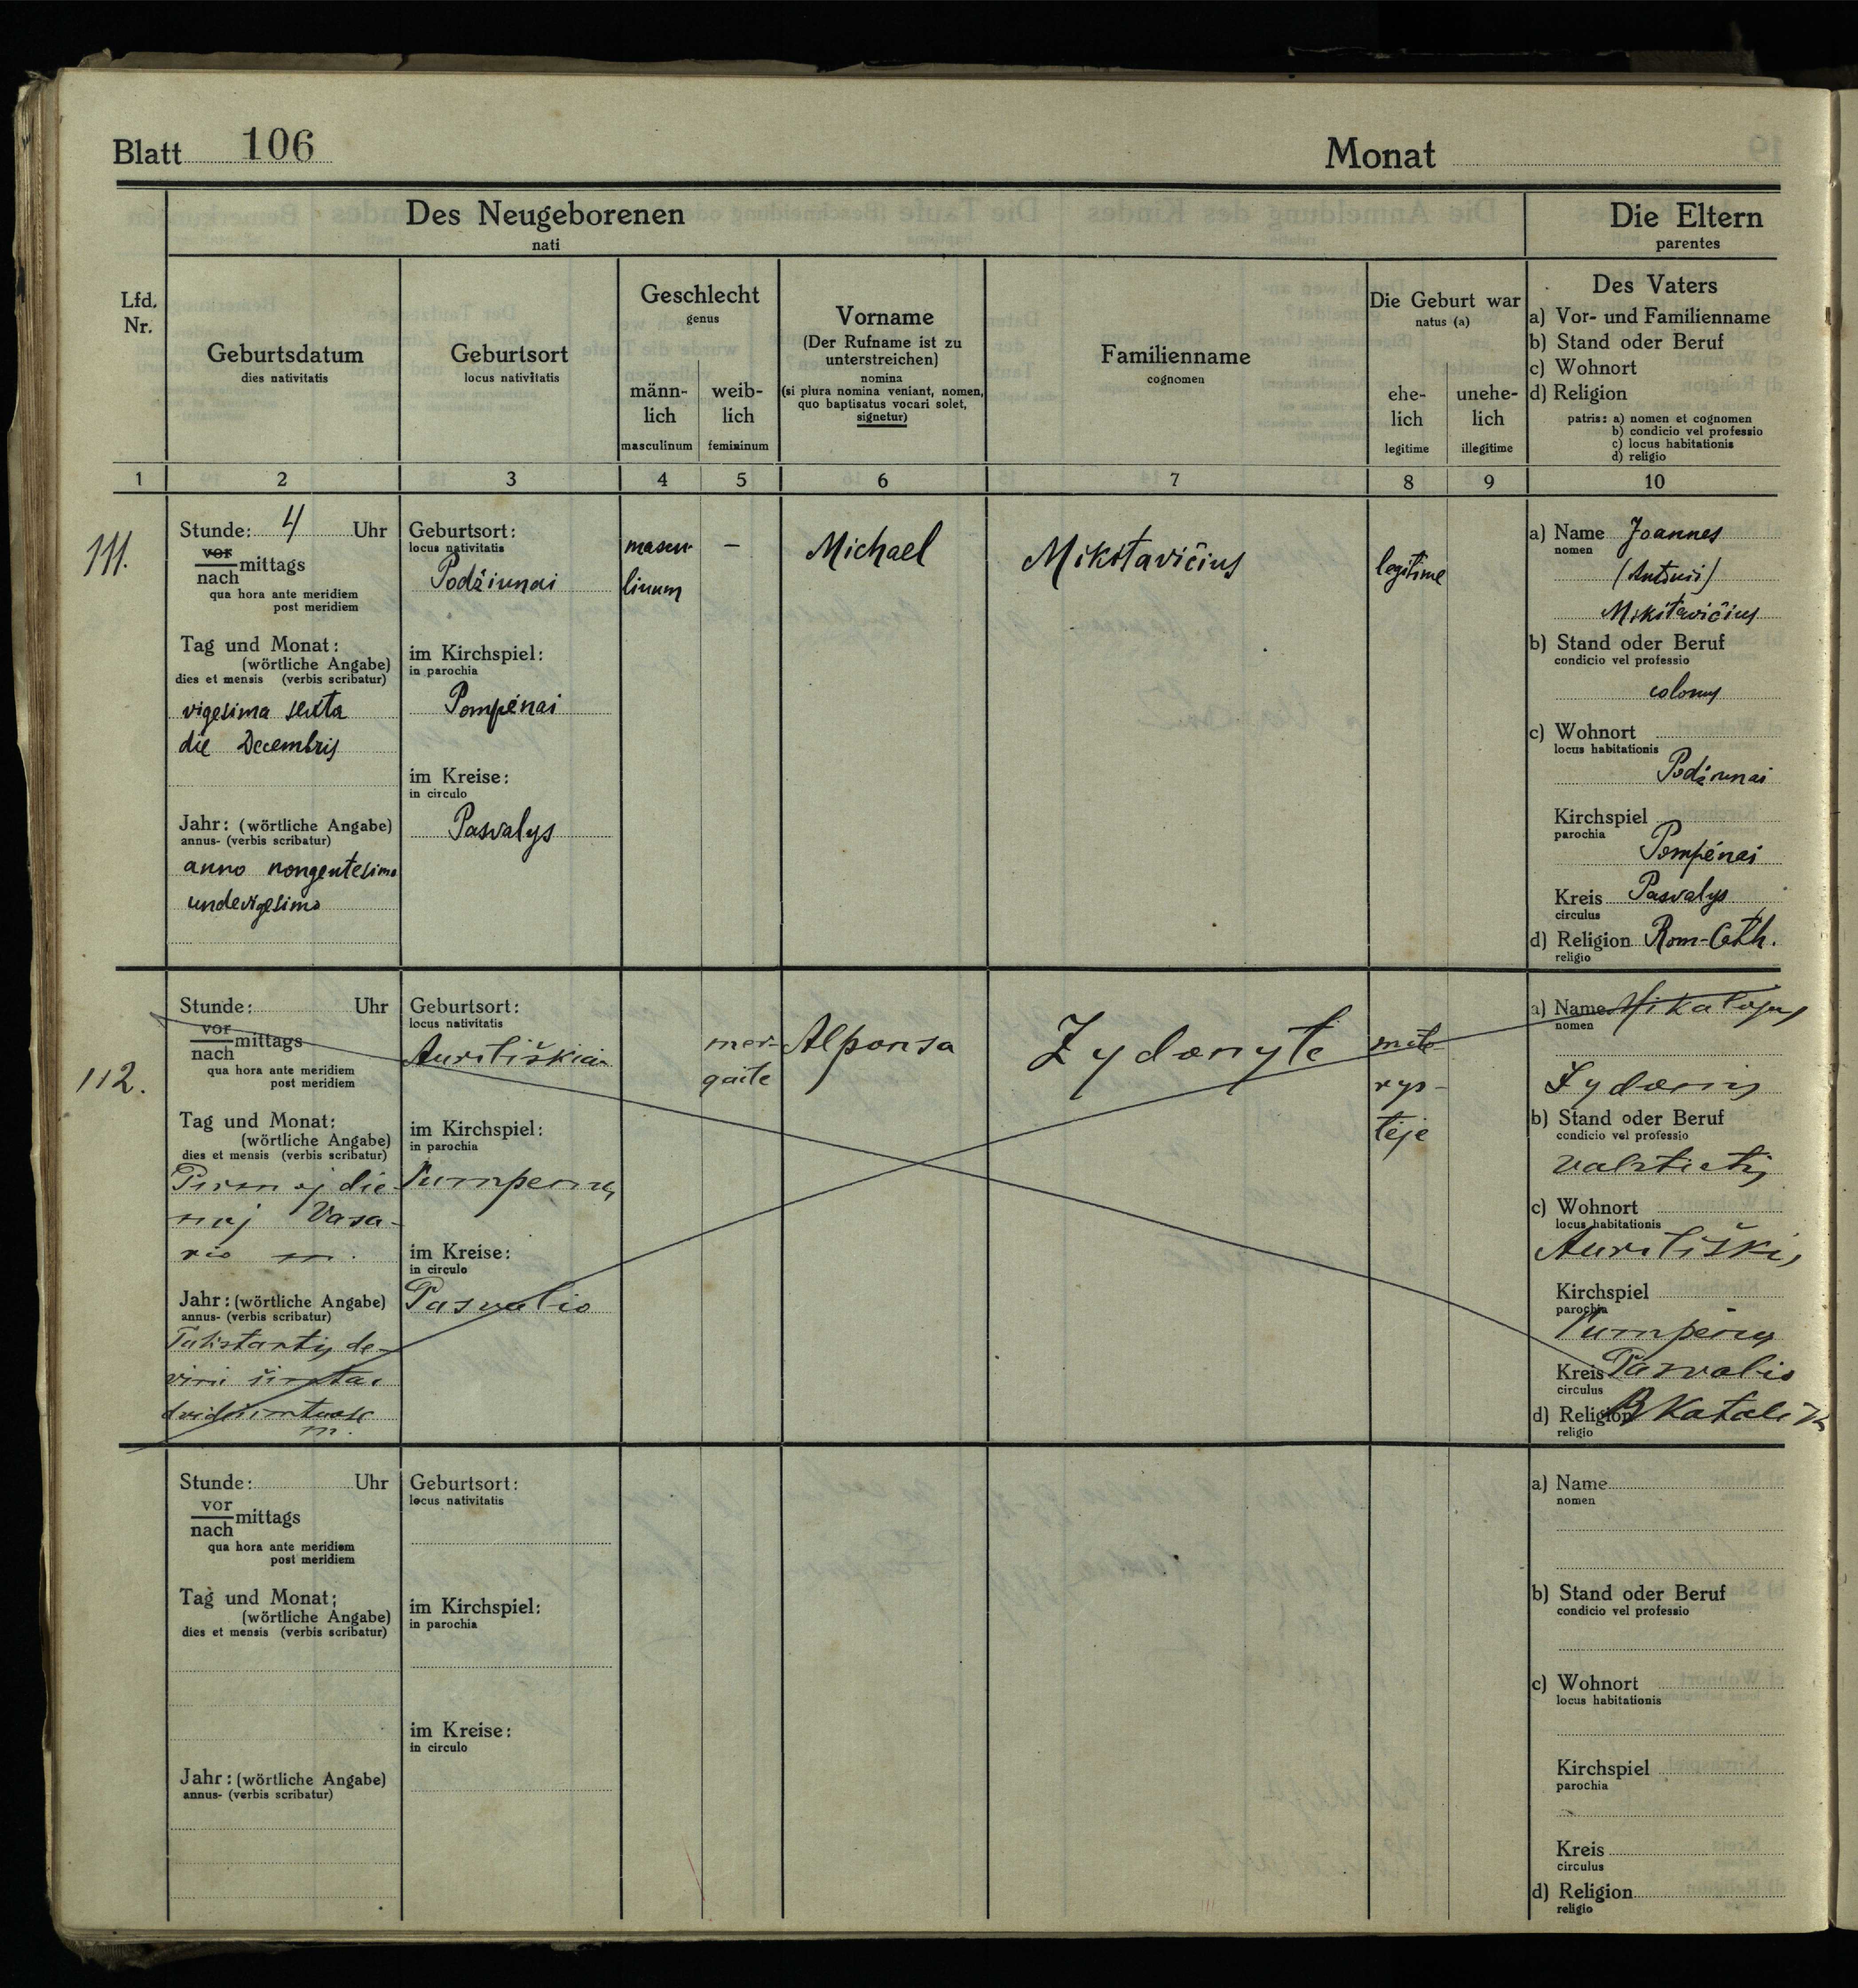 Blatt 106
Monat
Des Neugeborenen
nati
Die Eltern
parentes
Lfd. Nr.
Geburtsdatum
dies nativitatis
Geburtsort
locus nativitatis
Geschlecht
genus
männ-
lich
masculinum
weib-
lich
femininum
Vorname
(Der Rufname ist zu
unterstreichen)
nomina
(si plura nomina veniant, nomen,
quo baptisatus vocari solet,
signetur)
Familienname
cognomen
Die Geburt war
natus (a)
ehe-
lich
legitime
unehe-
lich
illegitime
Des Vaters
a) Vor- und Familienname
b) Stand oder Beruf
c) Wohnort
d) Religion
patris: a) nomen et cognomen
b) condicio vel professio
c) locus habitationis
d) religio
1 2 3 4 5 6 7 8 9 10
111.
Stunde: 4 Uhr
vor
nach mittags
qua hora ante meridiem
post meridiem
Tag und Monat:
(wörtliche Angabe)
dies et mensis (verbis scribatur)
vigesima sexta
die Decembris
Jahr: (wörtliche Angabe)
annus- (verbis scribatur)
anno nongentesimo
undevigesimo
Geburtsort:
locus nativitatis
Podžiunai
im Kirchspiel:
in parochia
Pompėnai
im Kreise:
in circulo
Pasvalys
mascu-
linum
—
Michael
Mikitavičius
legitime
a) Name Joannes
nomen
(Antonii)
Mikitavičius
b) Stand oder Beruf
condicio vel professio
colonus
c) Wohnort
locus habitationis
Podžiunai
Kirchspiel
parochia
Pompėnai
Kreis Pasvalys
circulus
d) Religion Rom-Cath.
religio
112.
Stunde: Uhr
vor
nach mittags
qua hora ante meridiem
post meridiem
Tag und Monat:
(wörtliche Angabe)
dies et mensis (verbis scribatur)
Pirmoj die-
noj Vasa-
rio m.
Jahr: (wörtliche Angabe)
annus- (verbis scribatur)
Tukstantis de-
vini šimtai
m.
Geburtsort:
locus nativitatis
Auriliškiai
im Kirchspiel:
in parochia
Pumpenų
im Kreise:
in circulo
Pasvalio
mer-
gaite
Alponsa
Zydonyte
mote-
rys-
tėje
a) Name Mikalojus
nomen
Zydonis
b) Stand oder Beruf
condicio vel professio
valstietis
c) Wohnort
locus habitationis
Auriliškių
Kirchspiel
parochia
Pumpenų
Kreis Pasvalio
circulus
d) Religion R Katalik
religio
Stunde: Uhr
vor
nach mittags
qua hora ante meridiem
post meridiem
Tag und Monat:
(wörtliche Angabe)
dies et mensis (verbis scribatur)
Jahr: (wörtliche Angabe)
annus- (verbis scribatur)
Geburtsort:
locus nativitatis
im Kirchspiel:
in parochia
im Kreise:
in circulo
a) Name
nomen
b) Stand oder Beruf
condicio vel professio
c) Wohnort
locus habitationis
Kirchspiel
parochia
Kreis
circulus
d) Religion
religio